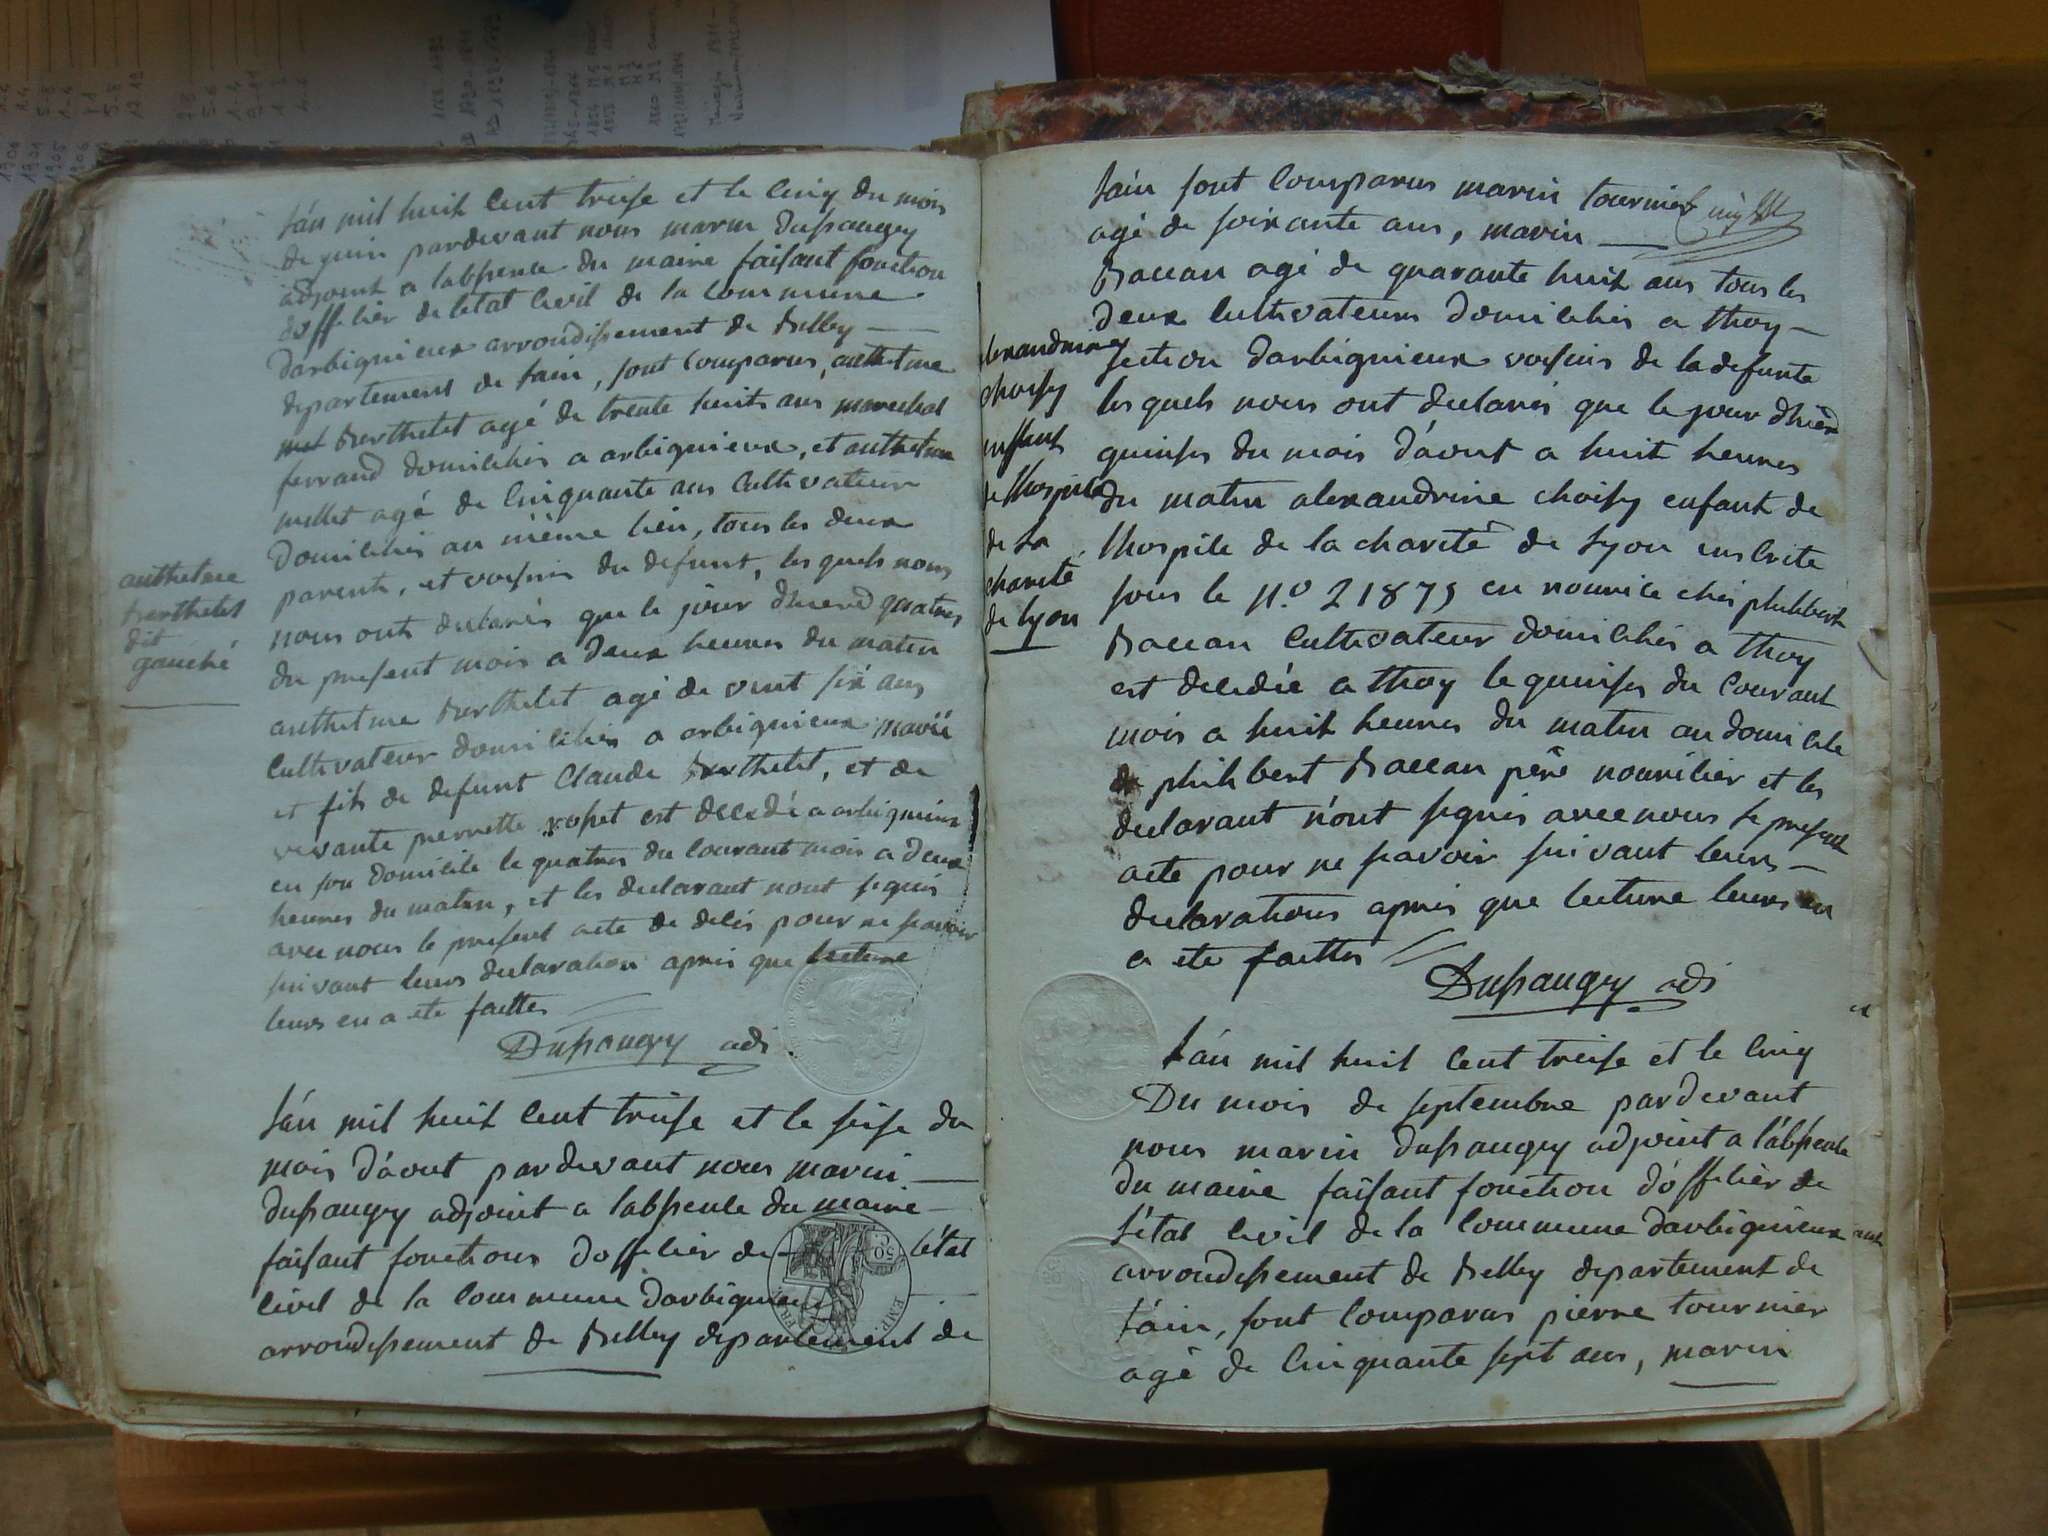 L'án mil huit Cent treise et le Cinq du mois
de juin pardevant nous marin Dupraugey
adjoint a labssence du maire faisant fonction
d'officier de letat Civil de la Commune
Darbignieux arrondissement de Belley
departement de Lain, sont Comparus, anthelme
Berthelet agé de trente huits ans marechal
ferrand domiciliés a arbignieux, et anthelme
millet agé de Cinquante ans Cultivateur
domiciliés au même lieu, tous les deux
parents, et voisins du defunt, les quels nous
nous onts declarés que le jour dhierd quatres
du present mois a deux heures du matin
anthelme Berthelet agé de vint six ans
Cultivateur domiciliés a arbignieux marië
et fils de defunt Claude Berthelet, et de
vivante pierrette ropet est decedé a arbignieux
en son domicile le quatres du Courant mois a deux
heures du matin, et les declarant nont signés
avec nous le present acte de décés pour ne scavoir
suivant leurs declaration apres que lecture
leurs en a ete faittes
Dupraugey adj
anthelme
berthelet
dit
gauché
L'án mil huit Cent treise et le seise du
mois d'áout pardevant nous marin
Dupraugey adjoint a labssence du maire
faisant fonctions dofficier de létat
Civil de la Commune darbignieux
arrondissement de Belley departement de
50 C.
EMP.
Lain sont Comparus marin tournier
agé de soixante ans, marin
Baccan agé de quarante huit ans tous les
deux Cultivateurs domiciliés a thoy
section darbignieux voisins de la defunte
les quels nous ont declarés que le jour dhierd
quinses du mois d'áout a huit heures
du matin alexandrine choisy enfant de
lhospice de la charité de Lyon inscrite
sous le N.o 21875 en nourice ches philibert
Baccan Cultivateur domiciliés a thoy
est decedée a thoy le quinses du Courant
mois a huit heures du matin au domicile
de philibert Baccan pere nouricier et les
declarant n'ont signés avec nous le present
acte pour ne scavoir suivant leurs
declarations apres que lecture leurs en
a ete faittes
Dupraugey adj
alexandrine
choisy
enffant
de lhospice
de La
charité
de Lyon
L'án mil huit Cent treise et le Cinq
Du mois de septembre pardevant
nous marin Dupraugey adjoint a l'ábssence
du maire faisant fonction d'officier de
L'état Civil de la Commune darbignieux
arrondissement de Belley departement de
L'áin, sont Comparus pierre tournier
agé de Cinquante sept ans, marin